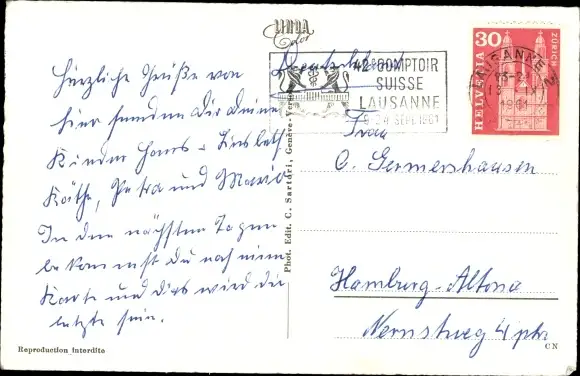 LINDA
Color
Herzliche Grüße von
hier senden Dir deine
Kinder Hans - Liesbeth
Käthe, Petra und Mario
In den nächsten Tagen
bekommst du noch eine
Karte und dies wird die
letzte sein.
Reproduction interdite
Phot. Edit. C. Sartori, Genève-Ver
Deutschland
42e COMPTOIR
SUISSE
LAUSANNE
9-24 SEPT. 1961
30
HELVETIA
ZÜRICH
LAUSANNE 2
1961
Frau
C. Germershausen
Hamburg-Altona
Nernstweg 4 ptr.
CN